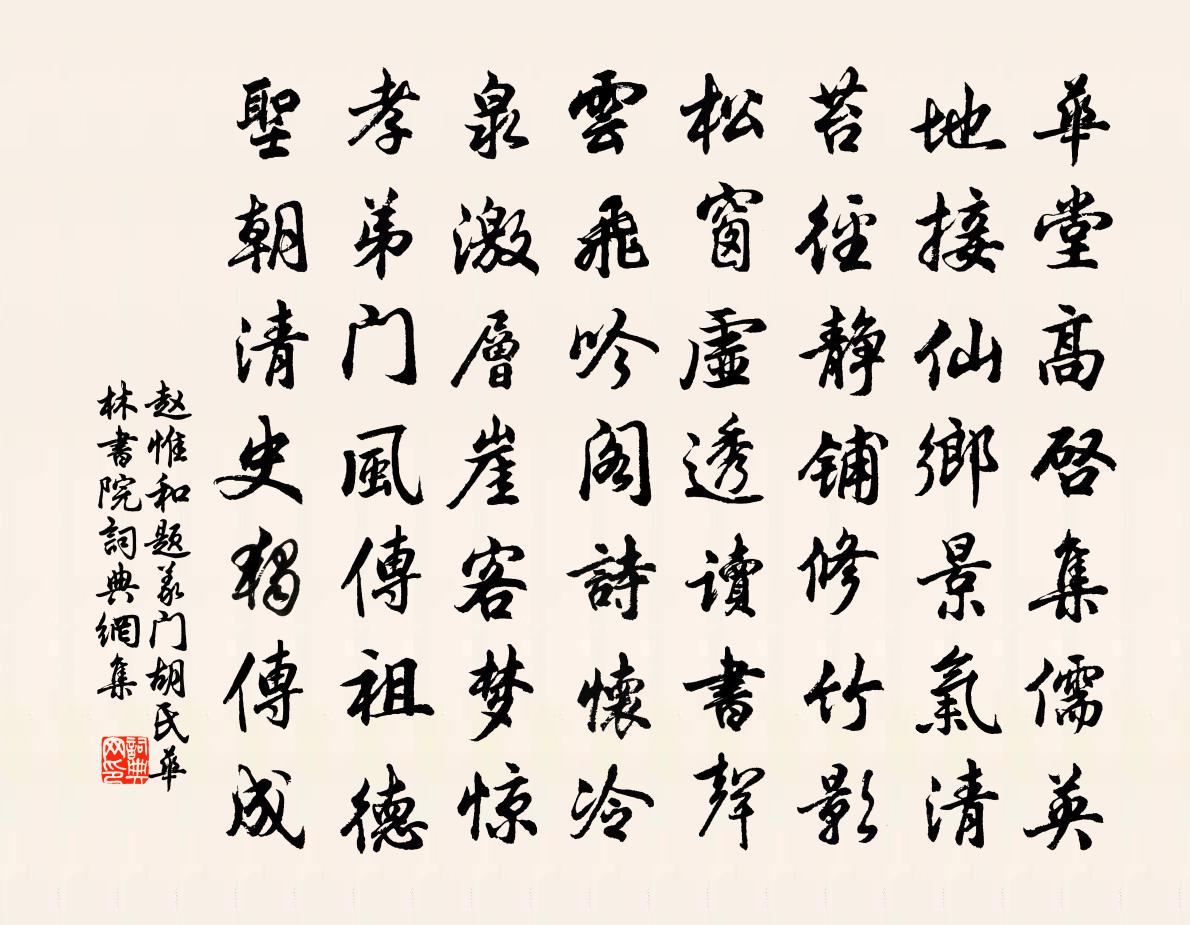 華堂高啓集儒英
地接仙鄉景氣清
苔徑靜鋪修竹影
松窗虛透讀書聲
雲飛吟閣詩懷冷
泉激層崖客梦惊
孝弟门風傳祖德
聖朝清史獨傳成
赵惟和题義门胡氏華
林書院詞典網集
詞典网印